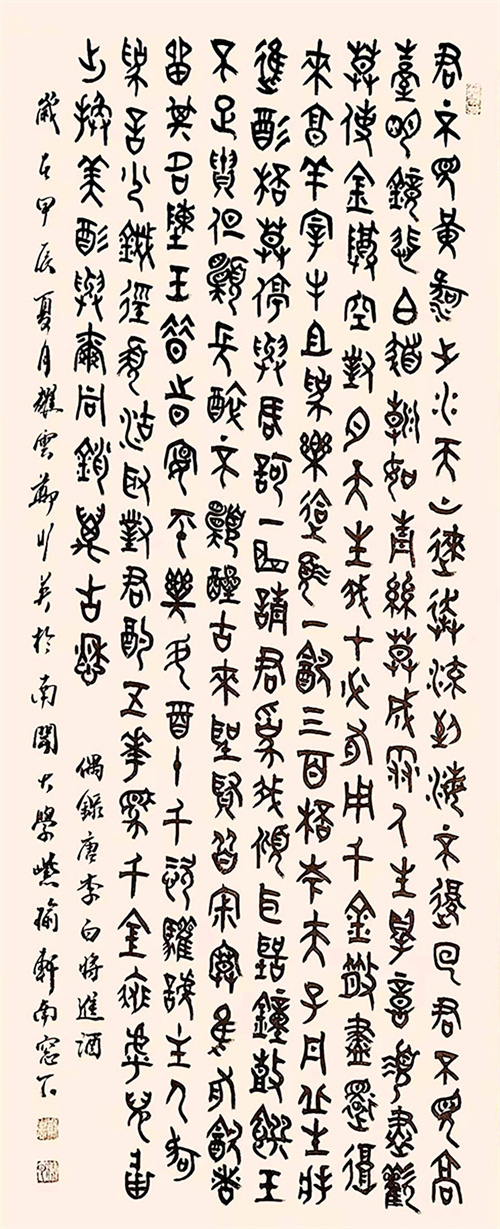 君不見黃河之水天上來奔流到海不復回君不見高
堂明鏡悲白髮朝如青絲莫成雪人生得意須盡歡
莫使金樽空對月天生我才必有用千金散盡還復
來烹羊宰牛且爲樂會須一飲三百杯岑夫子丹丘生將
進酒杯莫停與君歌一曲請君爲我傾耳聽鐘鼓饌玉
不足貴但願長醉不願醒古來聖賢皆寂寞惟有飲者
留其名陳王昔時宴平樂斗酒十千恣歡謔主人何
爲言少錢徑須沽取對君酌五花馬千金裘呼兒將
出換美酒與爾同銷萬古愁
偶錄唐李白將進酒
歲在甲辰夏月雲鄭英於南開大學軒南窗下